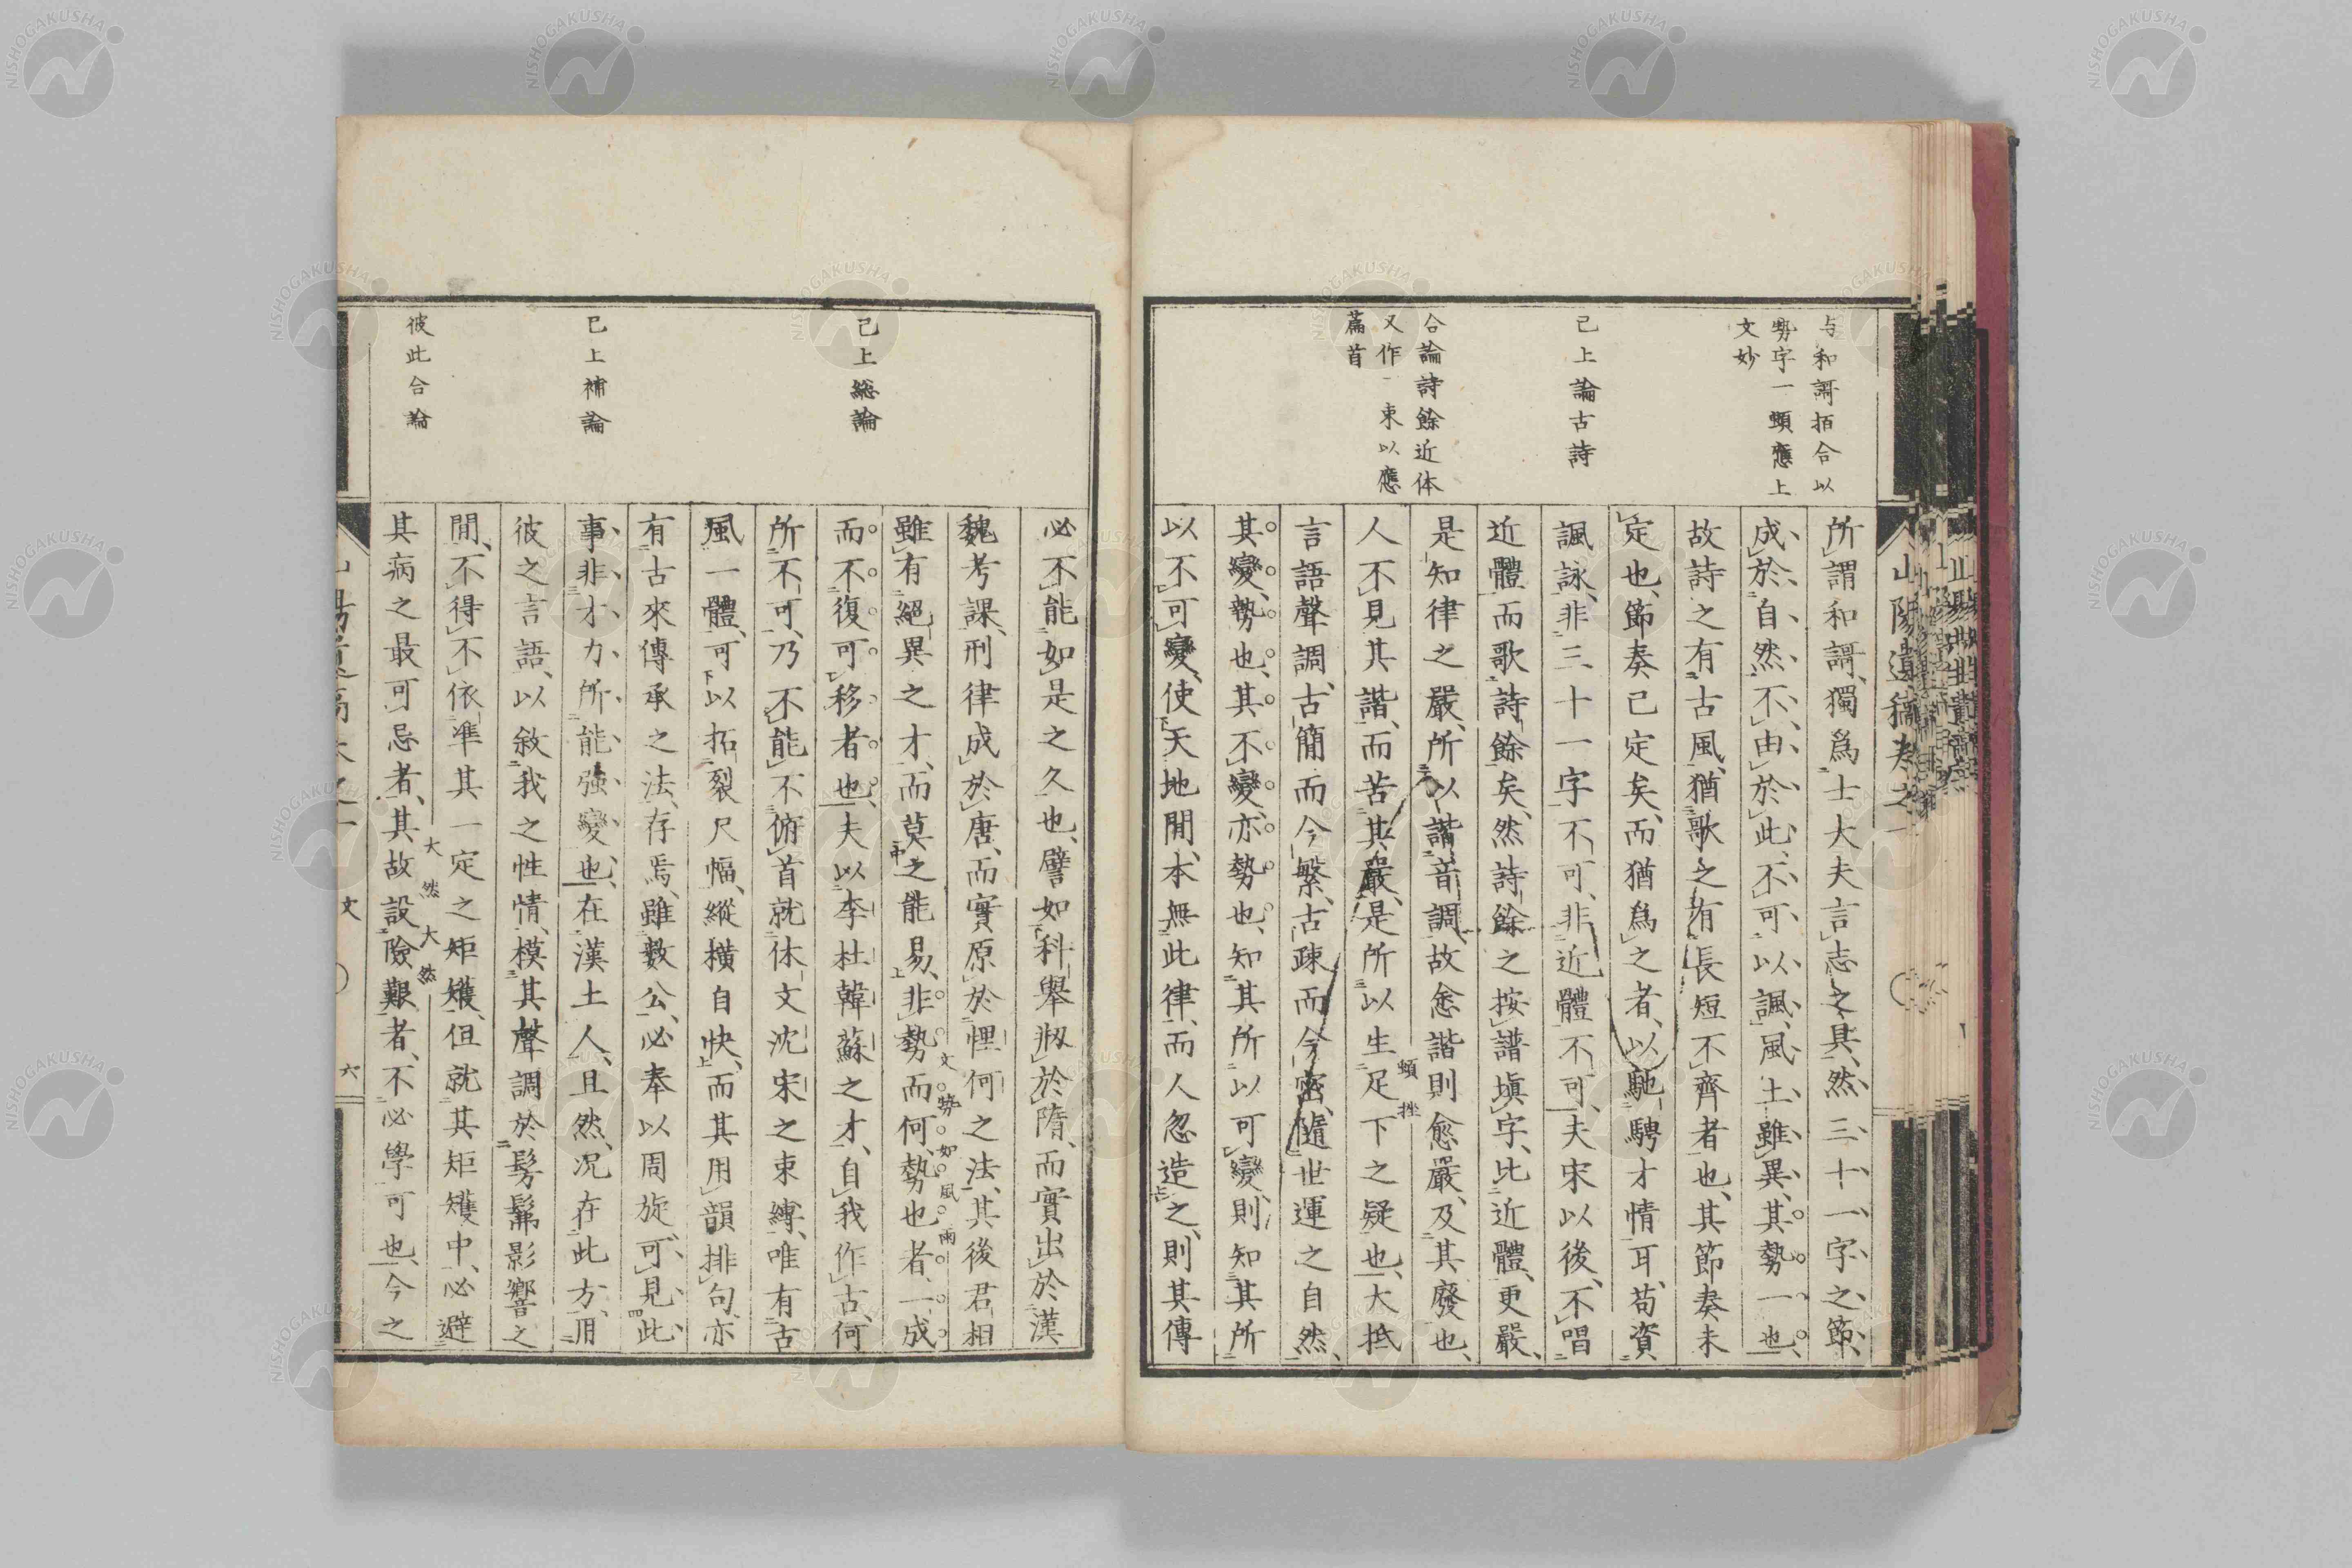 与和謌拍合以
勢字一頓應上
文妙
已上論古詩
合論詩餘近体
又作一束以應
篇首
山陽遺稿卷之一
所謂和謌、獨爲士大夫言志之具、然三十一字之節、
成於自然、不由於此、不可以諷、風土雖異、其勢一也、
故詩之有古風、猶歌之有長短不齊者也、其節奏未
定也、節奏已定矣、而猶爲之者、以馳騁才情耳、苟資
諷詠、非三十一字不可、非近體不可、夫宋以後、不唱
近體而歌詩餘矣、然詩餘之按譜塡字、比近體、更嚴、
是知律之嚴、所以諧音調、故愈諧則愈嚴、及其廢也、
人不見其諧、而苦其嚴、是所以生足下之疑也、大抵
頓挫
言語聲調、古簡而今繁、古疎而今密、隨世運之自然、
其變、勢也、其不變、亦勢也、知其所以可變、則知其所
以不可變、使天地閒、本無此律、而人忽造之、則其傳
已上総論
已上補論
彼此合論
必不能如是之久也、譬如科舉㧞於隋、而實出於漢、
魏考課、刑律成於唐、而實原於悝何之法、其後君相
文勢如風雨
雖有絕異之才、而莫之能易、非勢而何、勢也者、一成
而不復可移者也、夫以李杜韓蘇之才、自我作古、何
所不可、乃不能不俯首就休文沈宋之束縛、唯有古
風一體、可以拓裂尺幅、縱橫自快、而其用韻排句、亦
有古來傳承之法、存焉、雖數公、必奉以周旋、可見此
事、非才力所能強變也、在漢土人、且然、况在此方、用
彼之言語、以敘我之性情、模其聲調於髣髴影響之
閒、不得不依準其一定之矩矱、但就其矩矱中、必避
大然大然
其病之最可忌者、其故設險艱者、不必學可也、今之
文
六